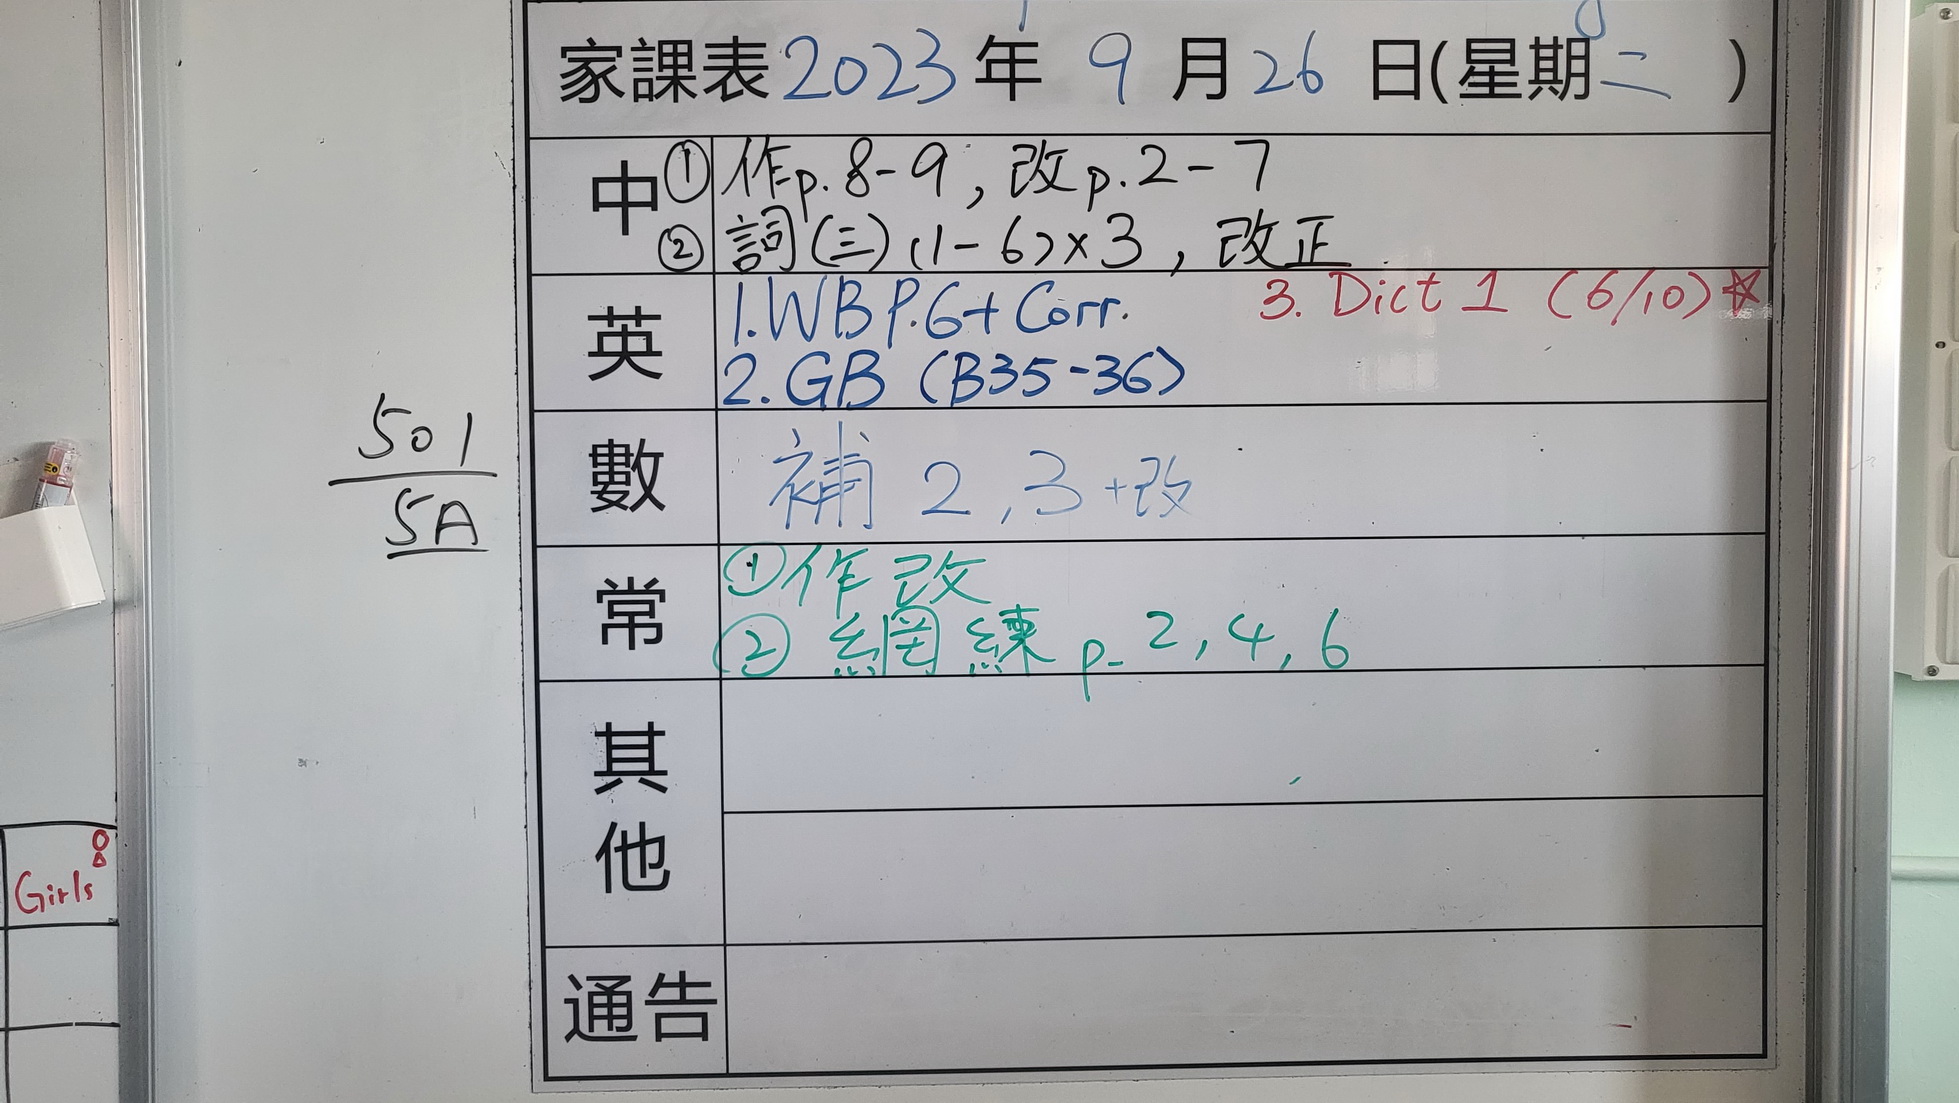 家課表 2023 年 9 月 26 日(星期二)
中 ① 作p.8-9, 改p.2-7
② 詞(三)(1-6)×3, 改正
英 1.WB P.6+Corr. 3. Dict 1 (6/10)☆
2. GB (B35-36)
數 補 2,3+改
常 ①作改
② 網練 p. 2,4,6
其他
通告
501
5A
Girls